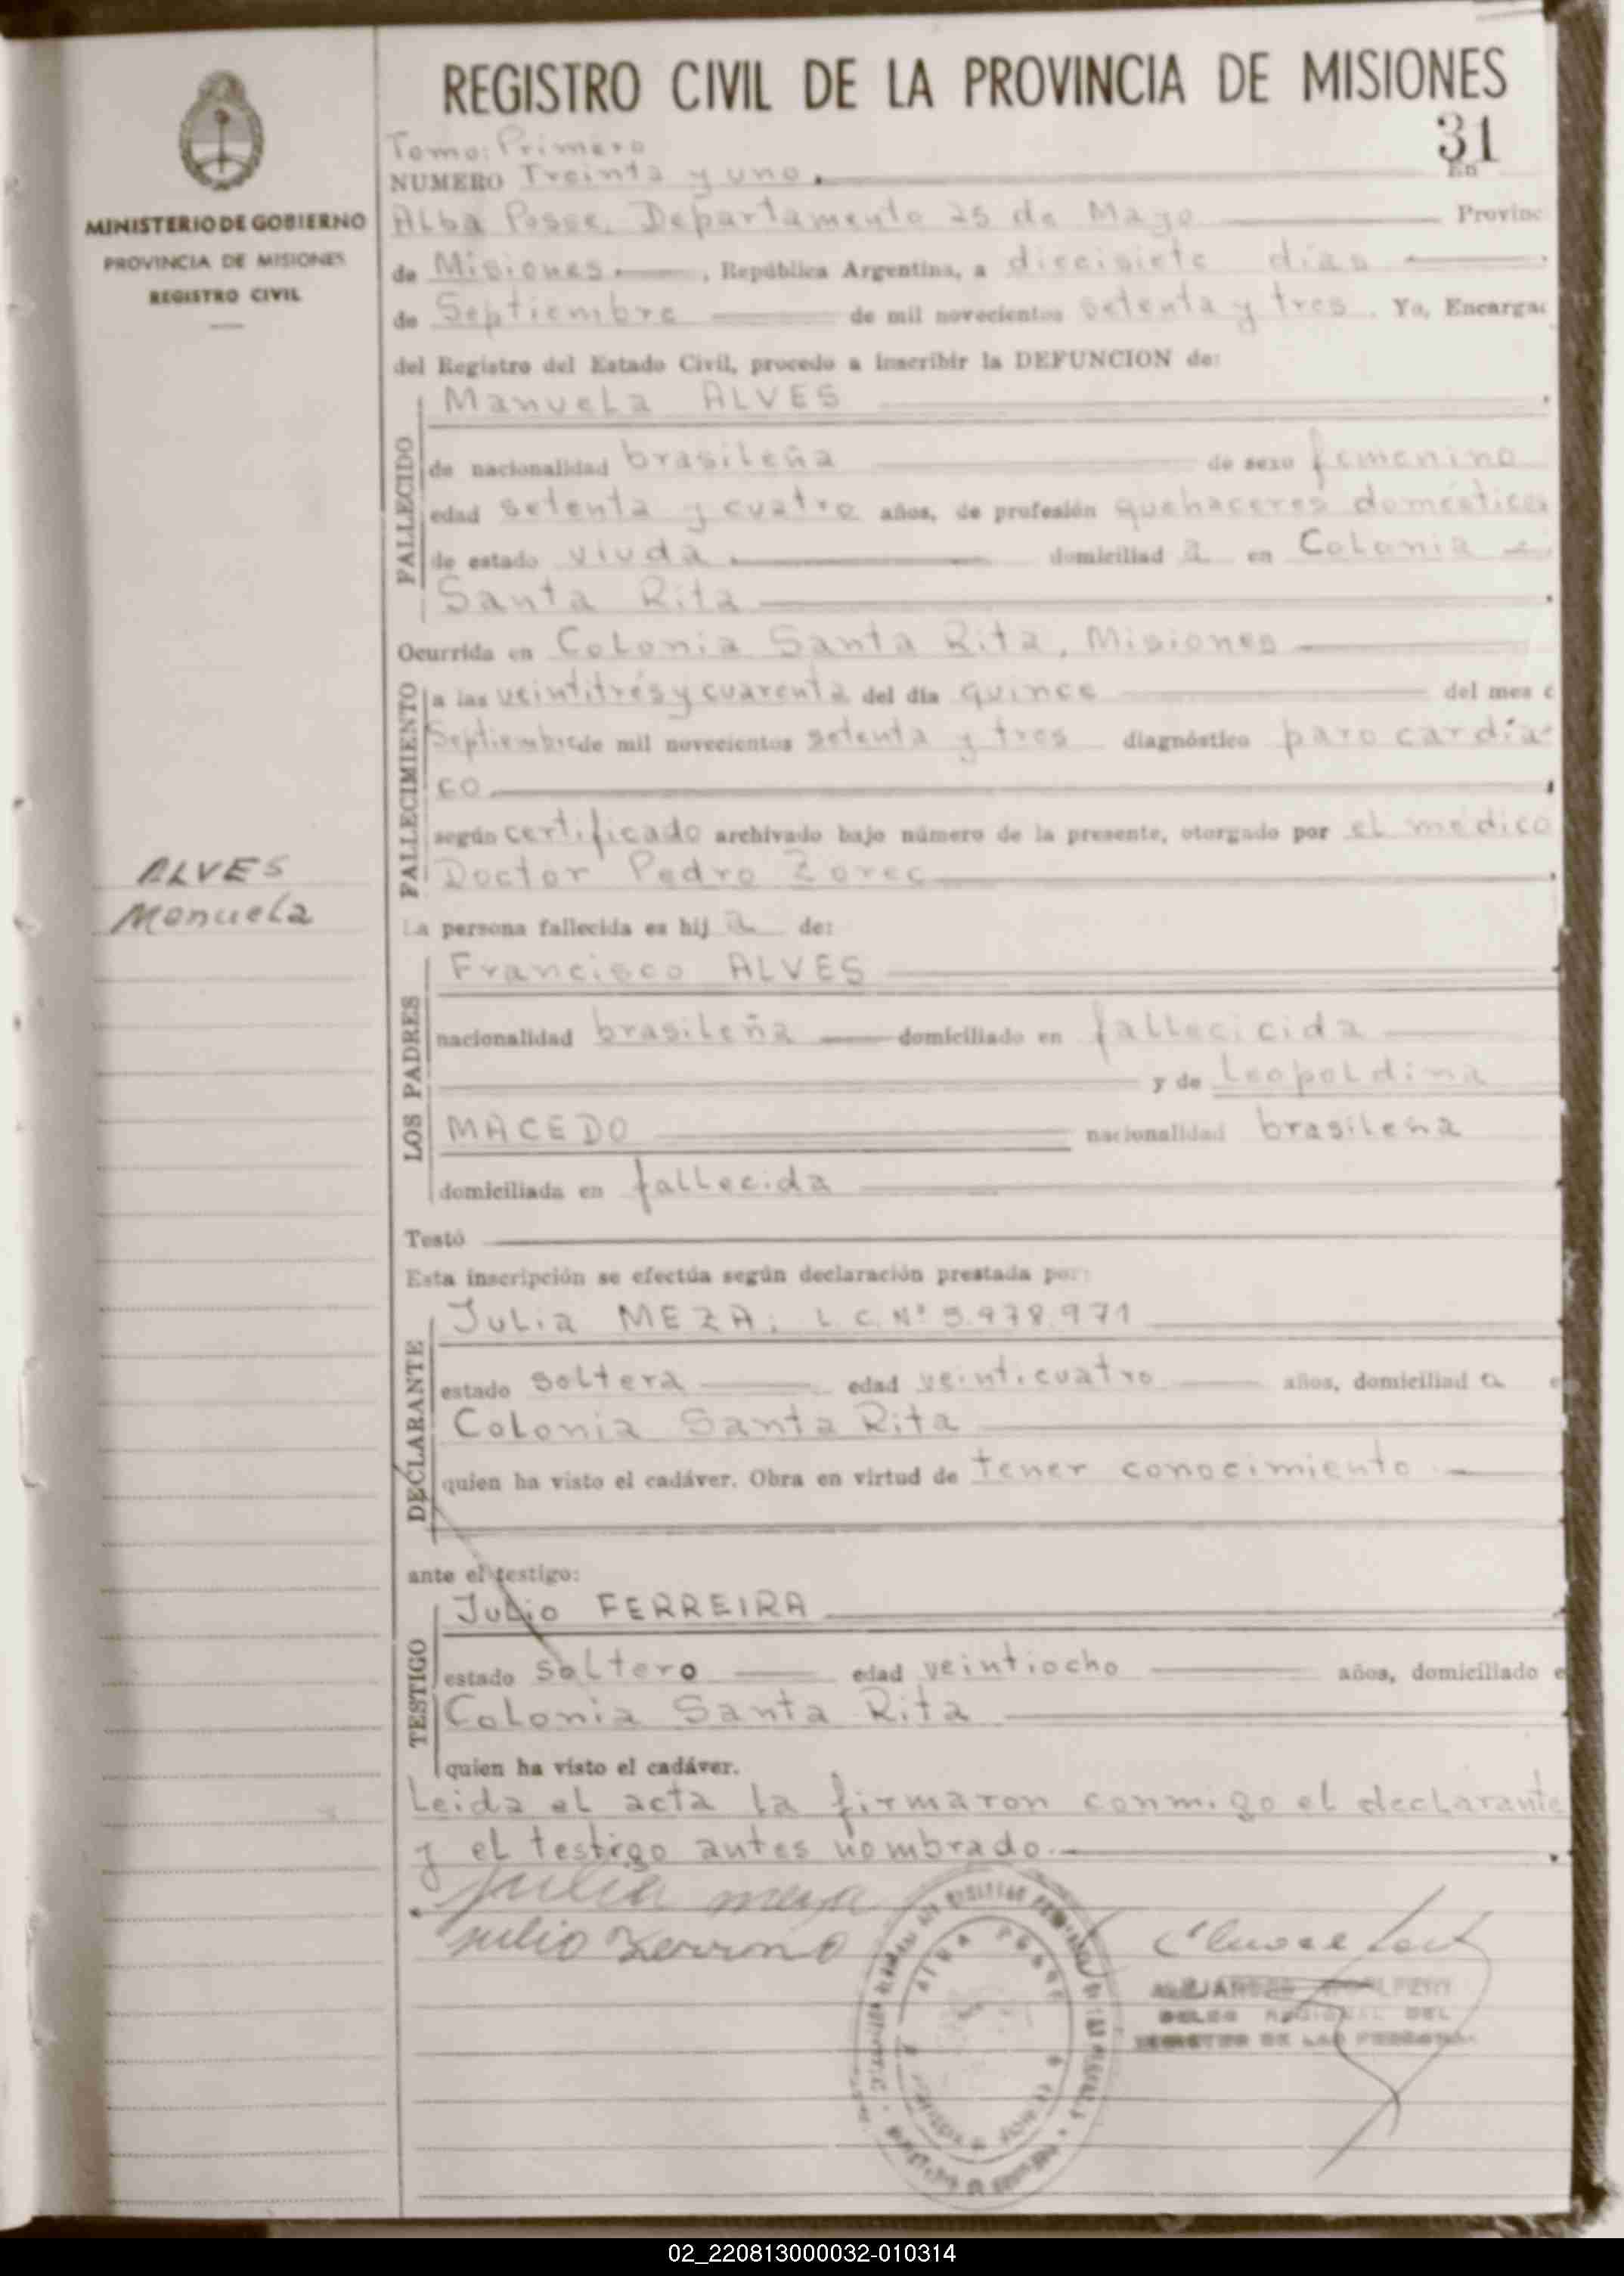 REGISTRO CIVIL DE LA PROVINCIA DE MISIONES
31
MINISTERIO DE GOBIERNO
PROVINCIA DE MISIONES
REGISTRO CIVIL
ALVES
Manuela
Tomo: Primero
NUMERO Treinta y uno. En
Alba Posse, Departamento 25 de Mayo Provinc
de Misiones, República Argentina, a diecisiete días
de Septiembre de mil novecientos setenta y tres. Yo, Encargac
del Registro del Estado Civil, procedo a inscribir la DEFUNCION de:
FALLECIDO
Manuela ALVES
de nacionalidad brasileña de sexo femenino
edad setenta y cuatro años, de profesión quehaceres domésticos
de estado viuda. domiciliad a en Colonia
Santa Rita
Ocurrida en Colonia Santa Rita, Misiones
FALLECIMIENTO
a las veintitrés y cuarenta del día quince del mes d
Septiembre de mil novecientos setenta y tres diagnóstico paro cardía-
co.
según certificado archivado bajo número de la presente, otorgado por el médico
Doctor Pedro Zorec
La persona fallecida es hij a de:
LOS PADRES
Francisco ALVES
nacionalidad brasileña domiciliado en fallecicida
y de Leopoldina
MACEDO nacionalidad brasileña
domiciliada en fallecida
Testó
Esta inscripción se efectúa según declaración prestada por:
DECLARANTE
Julia MEZA; L.C. Nº 5.978.971
estado soltera edad veinticuatro años, domiciliad a e
Colonia Santa Rita
quien ha visto el cadáver. Obra en virtud de tener conocimiento
ante el testigo:
TESTIGO
Julio FERREIRA
estado soltero edad veintiocho años, domiciliado e
Colonia Santa Rita
quien ha visto el cadáver.
Leida el acta la firmaron conmigo el declarante
y el testigo antes nombrado.
julia meza
julio
ALBA POSSE
REGIONAL DEL
REGISTRO DE LAS PERSONAS
02_220813000032-010314